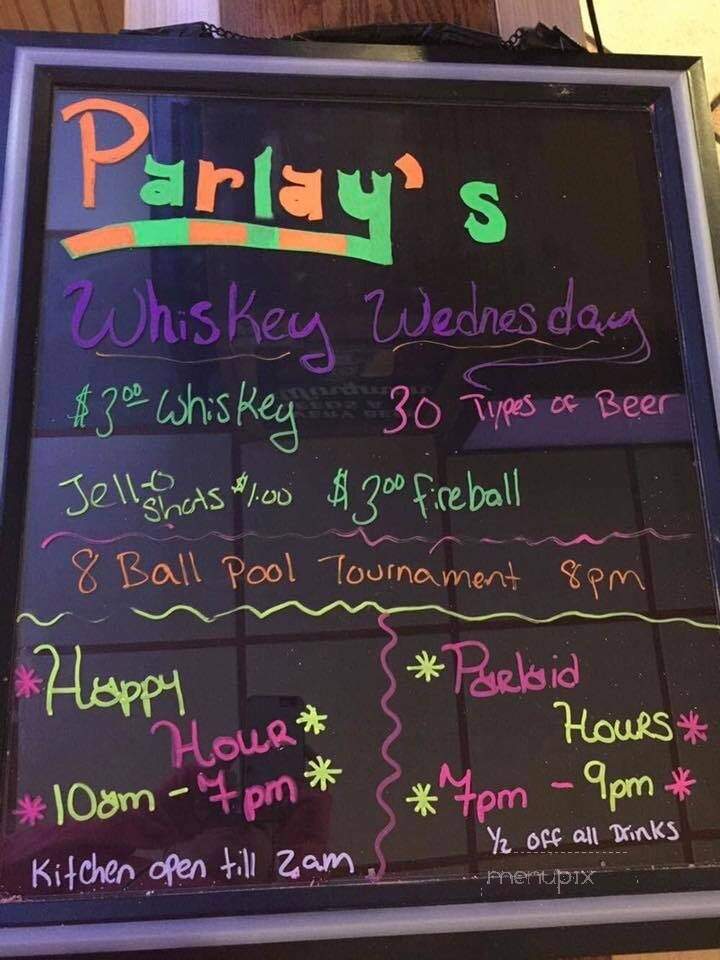 Parlay's
Whiskey Wednesday
$3.00 Whiskey 30 Types of Beer
Jell-O Shots $1.00 $3.00 fireball
8 Ball Pool Tournament 8pm
*Happy
Hour*
*10am - 7pm*
Kitchen open till 2am
*Parlaid
Hours*
*7pm - 9pm*
1/2 off all Drinks
menupix